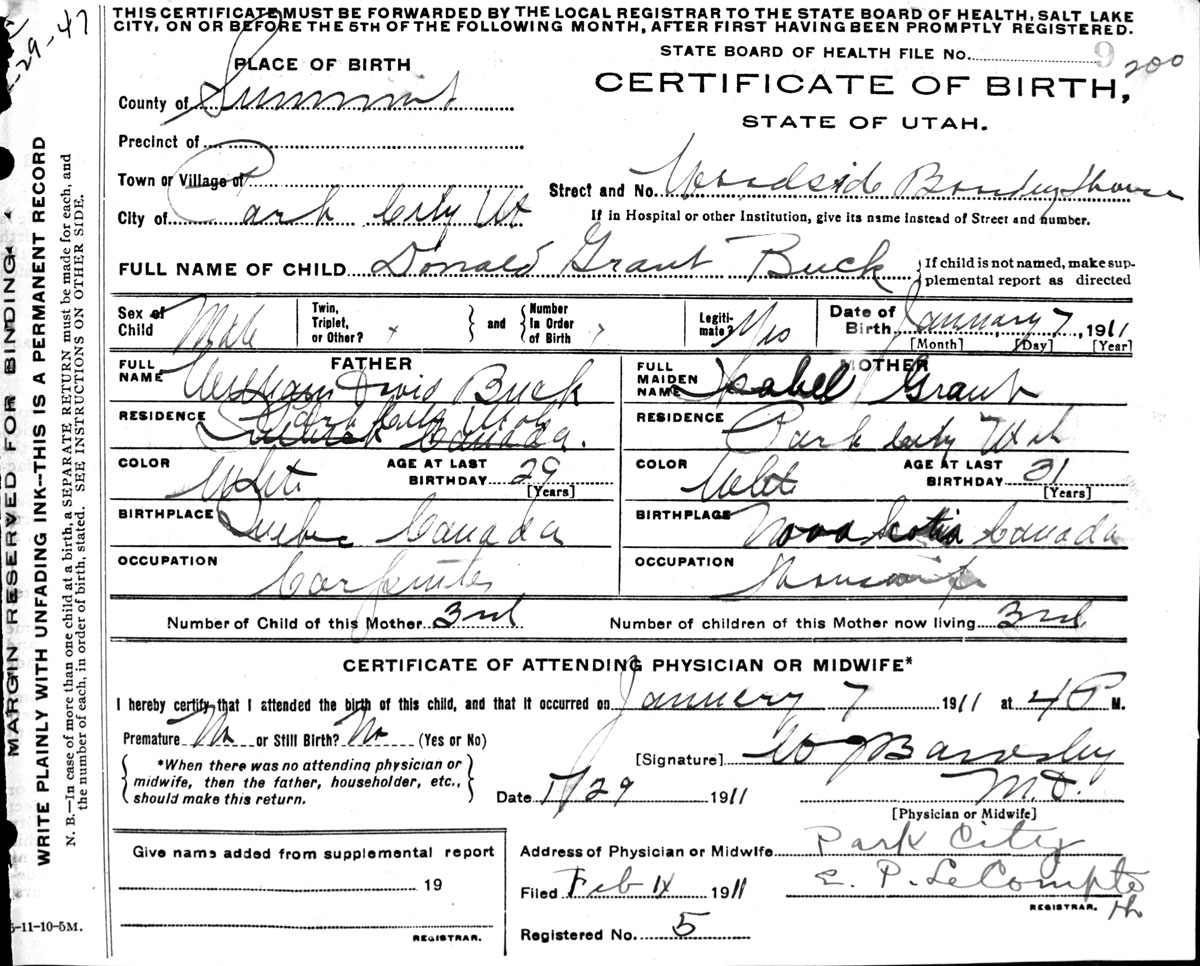 THIS CERTIFICATE MUST BE FORWARDED BY THE LOCAL REGISTRAR TO THE STATE BOARD OF HEALTH, SALT LAKE
CITY, ON OR BEFORE THE 5TH OF THE FOLLOWING MONTH, AFTER FIRST HAVING BEEN PROMPTLY REGISTERED.
29-47
STATE BOARD OF HEALTH FILE No. 9 200
PLACE OF BIRTH
CERTIFICATE OF BIRTH,
STATE OF UTAH.
County of Summit
Precinct of
Town or Village of
Street and No. Woodside Boarding House
City of Park City Ut
If in Hospital or other Institution, give its name instead of Street and number.
FULL NAME OF CHILD Donald Grant Buck
If child is not named, make sup-
plemental report as directed
Sex of Child Male
Twin, Triplet, or Other?
and
Number In Order of Birth
Legiti-mate? Yes
Date of Birth January 7, 1911
[Month] [Day] [Year]
FATHER
FULL NAME William David Buck
RESIDENCE Park City Utah
Canada.
COLOR White AGE AT LAST BIRTHDAY 29 [Years]
BIRTHPLACE Quebec Canada
OCCUPATION Carpenter
MOTHER
FULL MAIDEN NAME Isabel Grant
RESIDENCE Park City Utah
COLOR White AGE AT LAST BIRTHDAY 31 [Years]
BIRTHPLACE Nova Scotia Canada
OCCUPATION Housewife
Number of Child of this Mother 3rd Number of children of this Mother now living 3rd
CERTIFICATE OF ATTENDING PHYSICIAN OR MIDWIFE*
I hereby certify that I attended the birth of this child, and that it occurred on January 7 1911 at 4 P M.
Premature No or Still Birth? No (Yes or No)
*When there was no attending physician or
midwife, then the father, householder, etc.,
should make this return.
[Signature] W J Bardsley
M.D.
Date 1/29 1911
[Physician or Midwife]
Give name added from supplemental report
19
REGISTRAR.
Address of Physician or Midwife Park City
Filed Feb 1911
E. P. LeCompte
REGISTRAR.
Registered No. 5
MARGIN RESERVED FOR BINDING
WRITE PLAINLY WITH UNFADING INK--THIS IS A PERMANENT RECORD
N. B.—In case of more than one child at a birth, a SEPARATE RETURN must be made for each, and
the number of each, in order of birth, stated. SEE INSTRUCTIONS ON OTHER SIDE.
5-11-10-5M.